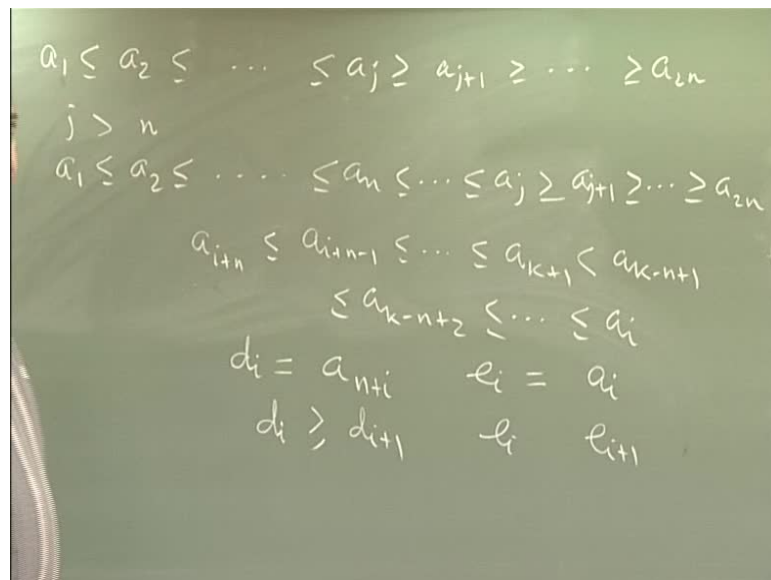 a₁ ≤ a₂ ≤ ⋯ ≤ aⱼ ≥ aⱼ₊₁ ≥ ⋯ ≥ a₂ₙ
j > n
a₁ ≤ a₂ ≤ ⋯⋯ ≤ aₙ ≤ ⋯ ≤ aⱼ ≥ aⱼ₊₁ ≥ ⋯ ≥ a₂ₙ
aᵢ₊ₙ ≤ aᵢ₊ₙ₋₁ ≤ ⋯ ≤ aₖ₊₁ < aₖ₋ₙ₊₁
≤ aₖ₋ₙ₊₂ ≤ ⋯ ≤ aᵢ
dᵢ = aₙ₊ᵢ eᵢ = aᵢ
dᵢ ≥ dᵢ₊₁ eᵢ eᵢ₊₁